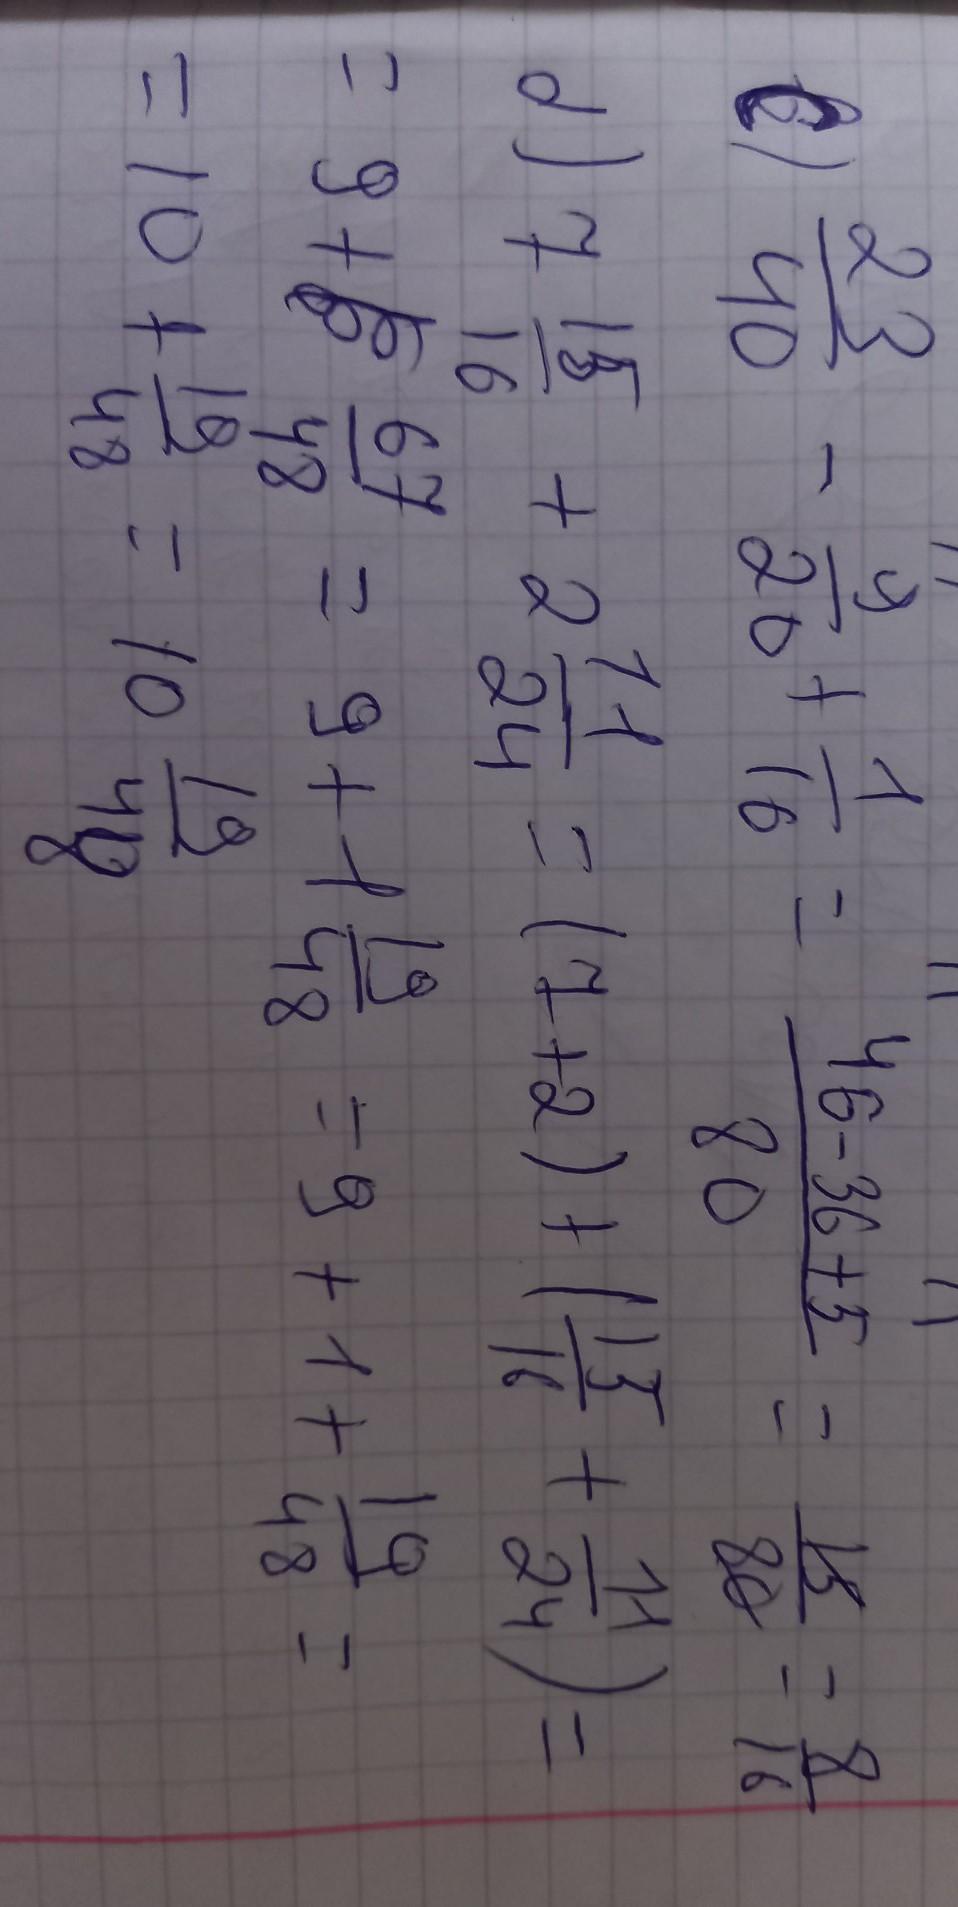 c) 23/40 - 9/20 + 1/16 = (46-36+5)/80 = 15/80 = 3/16
d) 7 15/16 + 2 11/24 = (7+2) + (15/16 + 11/24) =
= 9 + 67/48 = 9 + 1 19/48 = 9 + 1 + 19/48 =
= 10 + 19/48 = 10 19/48